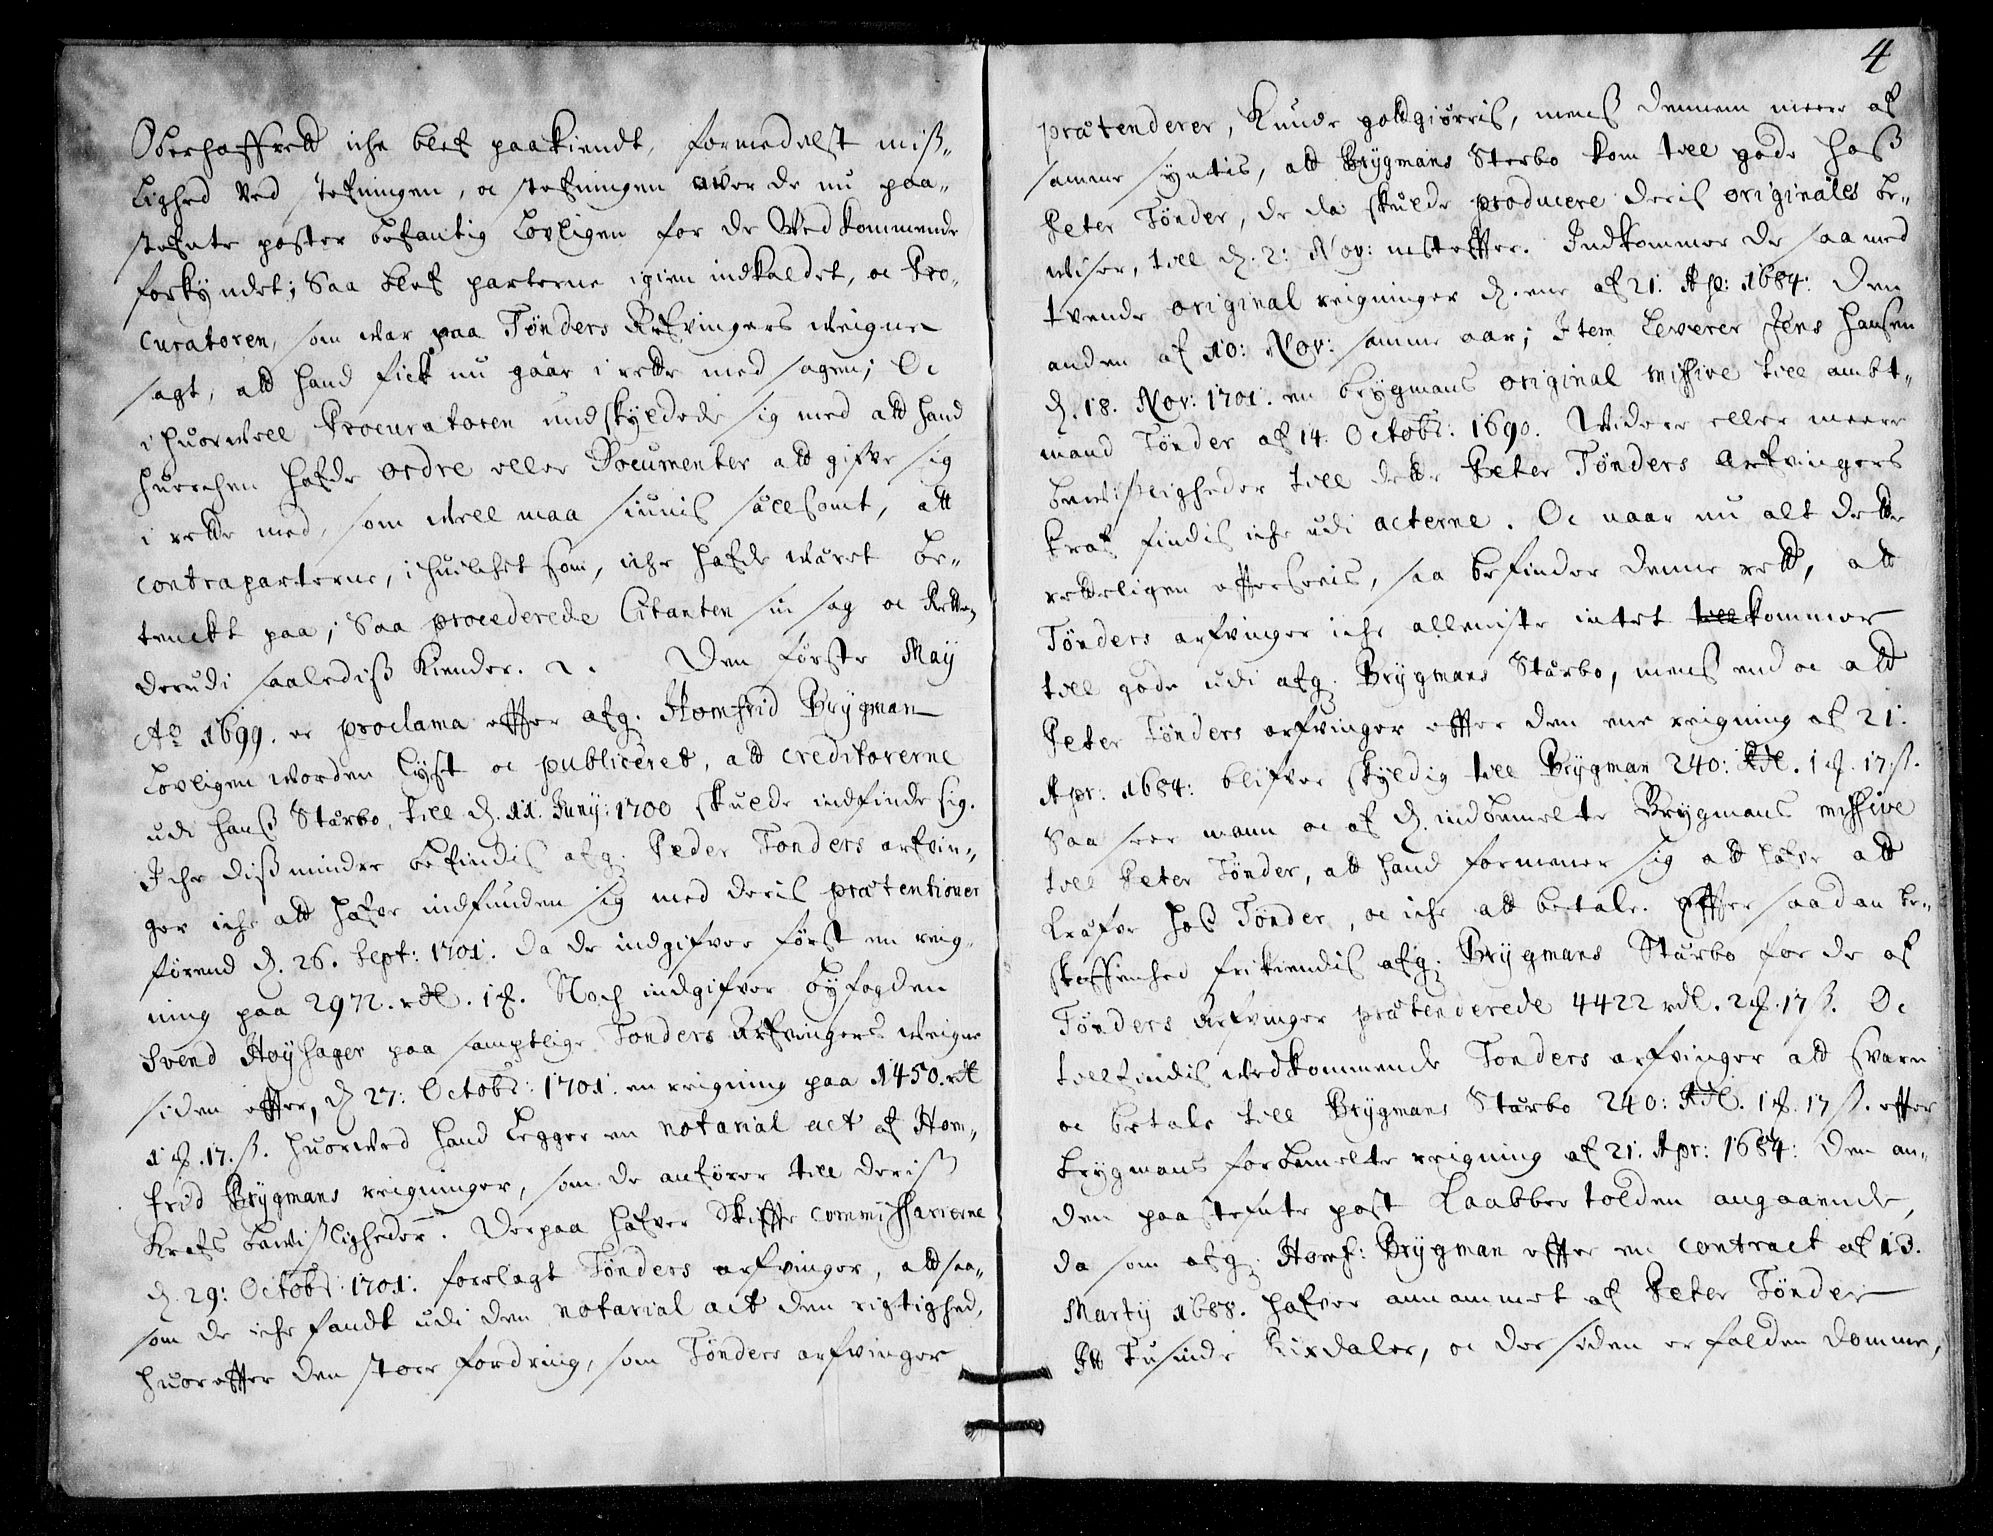 Oberhoffrett iche blef paakiendt, formedelst miß„
Lighed ved stefningen, oc stefningen over de nu paa„
stefnte poster befantis Lovligen for de Vedkommende
forkyndet; Saa blef parterne igien indkaldet, oc Pro„
curatoren, som war paa Tönders Arfvingers weigne
sagt, att hand fick nu gaar i rette med sagen; Oc
i huorwell Procuratoren undskyldede sig med att hand
huerchen hafde ordre eller Documenter att gifve sig
i rette med, som well maa siunis sällsomt, att
contraparterne, i huilchet som, iche hafde wäret be„
tenckt paa; Saa procederede Citanten sin sag oc Retten
derudi saalediß Kiender. 1. Den förste May
Aō 1699. er proclama effter afg. Homfrid Brÿgman
Lovligen worden lÿst oc publiceret, att creditorerne
udi hanß Stärbo, till d. 11. Junÿ: 1700 skulde indfinde sig.
Iche dißmindre befindis afg. Peder Tonders arfvin„
ger iche att hafve indfunden sig med deris prætentioner
förend d. 26. Sept: 1701. da de indgifver först en reig„
ning paa 2972. rdl. 1 ꝟ. Noch indgifver bÿfogden
Svend Höÿsager paa samptlige Tonders Arfvingers weigne
siden effter, d 27: Octobr: 1701. en reigning paa 1450. rdl
1 ꝟ. 17. ß. huorwed hand Legger en notarial act af Hom„
frid Brÿgmans reigninger, som de anförer till deriß
Krafs bewißligheder. Derpaa hafver Skiffte commissarierne
d. 29: Octobr: 1701: forelagt Tönders arfvinger, att saa„
som de iche fandt udi den notarial act den rigtighed,
huoreffter den store fordring, som Tönders arfvinger
4
prætenderer, Kunde gottgiörris, mens dennem meere af
samme syntis, att Brÿgmans Sterbo kom till gode hoß
Peter Tönder, de da skulde producere deris originales be„
wiser, till d. 2: Nov: nesteffter. Indkommer de saa med
tvende original reigninger d. ene af 21: Apl: 1684: den
anden af 10: Nov: samme aar; Item Leverer Jens Hansen
d. 18. Nov: 1701. en brÿgmans original missive till ambt„
mand Tönder af 14: Octobr: 1690. Widere eller meere
bewißligheder till dette Peter Tönders Arfvingers
Kraf findis iche udi acterne. Oc naar nu alt dette
retteligen effterseeis, saa befinder denne rett, att
Tönders arfvinger iche alleniste intet till kommer
till gode udi afg. Brÿgmans Stärbo, mens end oc att
Peter Tönders arfvinger effter den ene reigning af 21:
Apr: 1684: blifver skÿldig till Brÿgman 240: Rdl. 1 ꝟ. 17. ß.
Saa seer mann oc af d. indbemelte Brÿgmans missive
till Peter Tönder, att hand formener sig att hafve att
kräfve hoß Tönder, oc iche att betale. Effter saadan be„
skaffenhed frikiendis afg. Brÿgmans Stärbo for de af
Tönders Arfvinger prætenderede 4422 rdl. 2 ꝟ. 17 ß. Oc
tillfindis wedkommende Tonders arfvinger att svare
oc betale till Brÿgmans Stärbo 240: Rdl. 1 ꝟ. 17 ß. effter
brÿgmans forbemelte reigning af 21: Apr: 1684: Den an„
den paastefnte post Laabbertolden angaaende,
da som afg. Homf: Brÿgman effter en contract af 13.
Martÿ 1688. hafver annammet af Peter Tönder
Ett tusinde Rixdaler, oc der siden er falden domme,